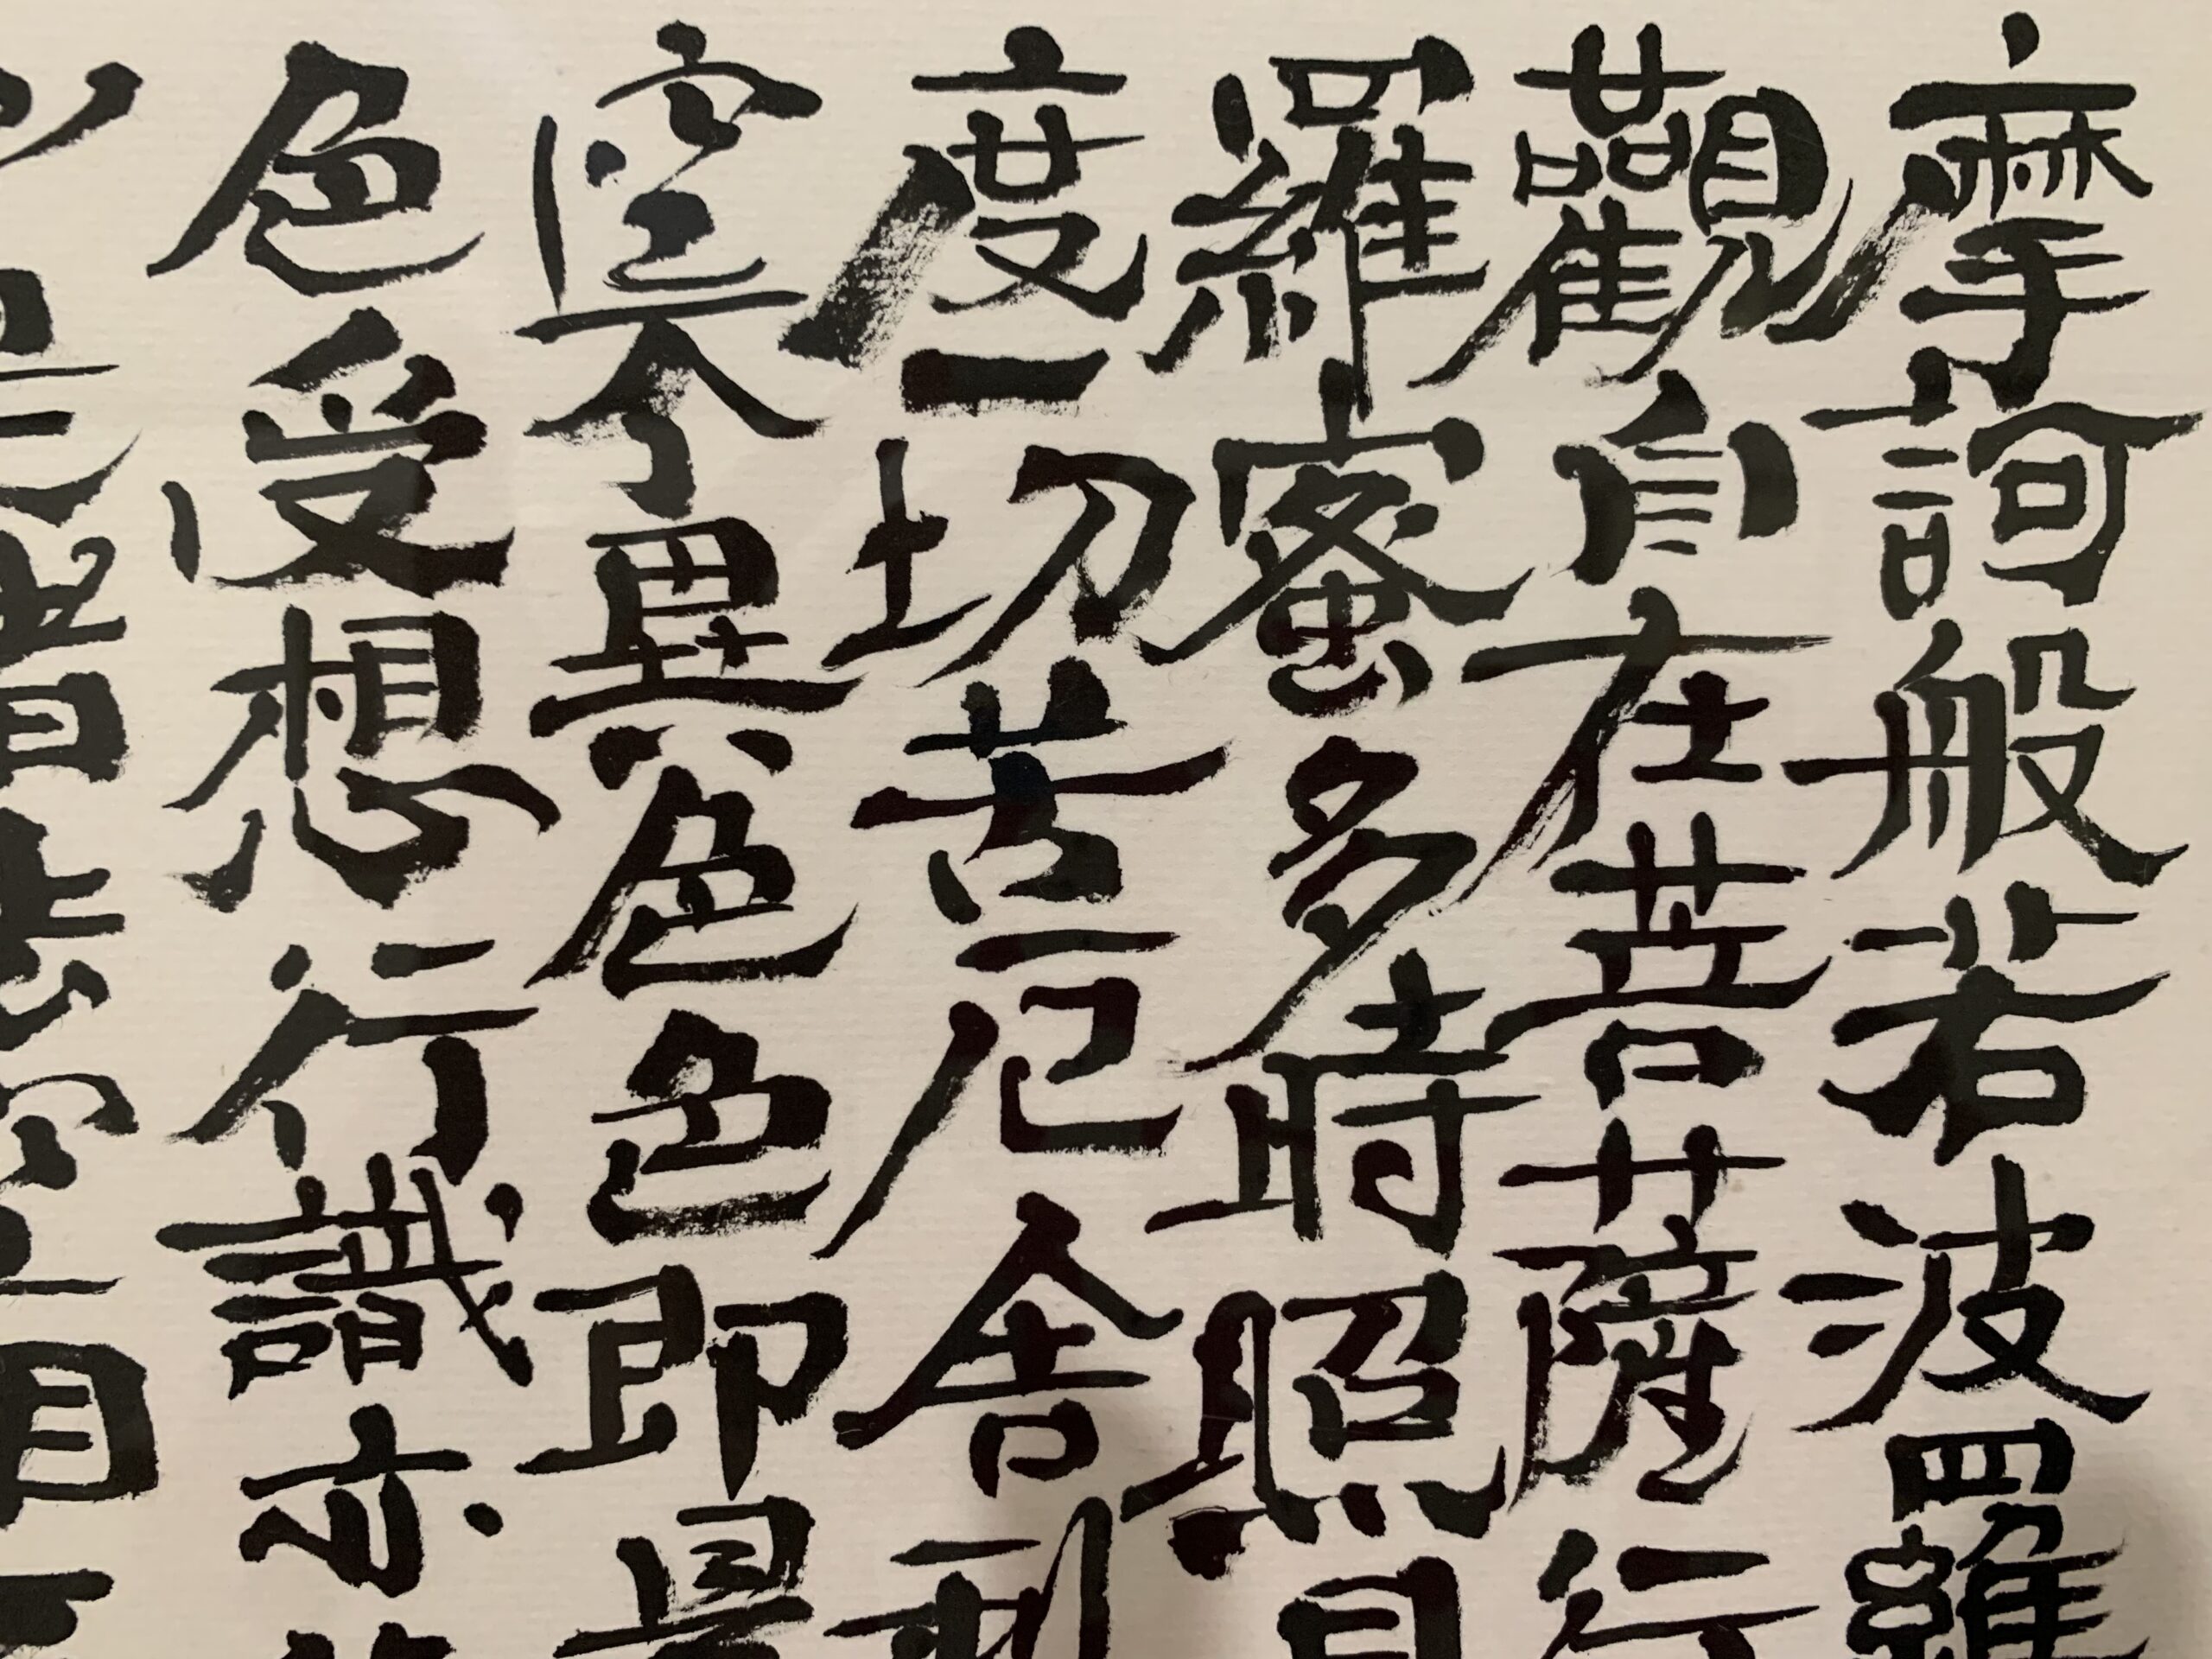 摩訶般若波羅
觀自在菩薩行
羅蜜多時照見
度一切苦厄舍利
空不異色色即是
色受想行識亦